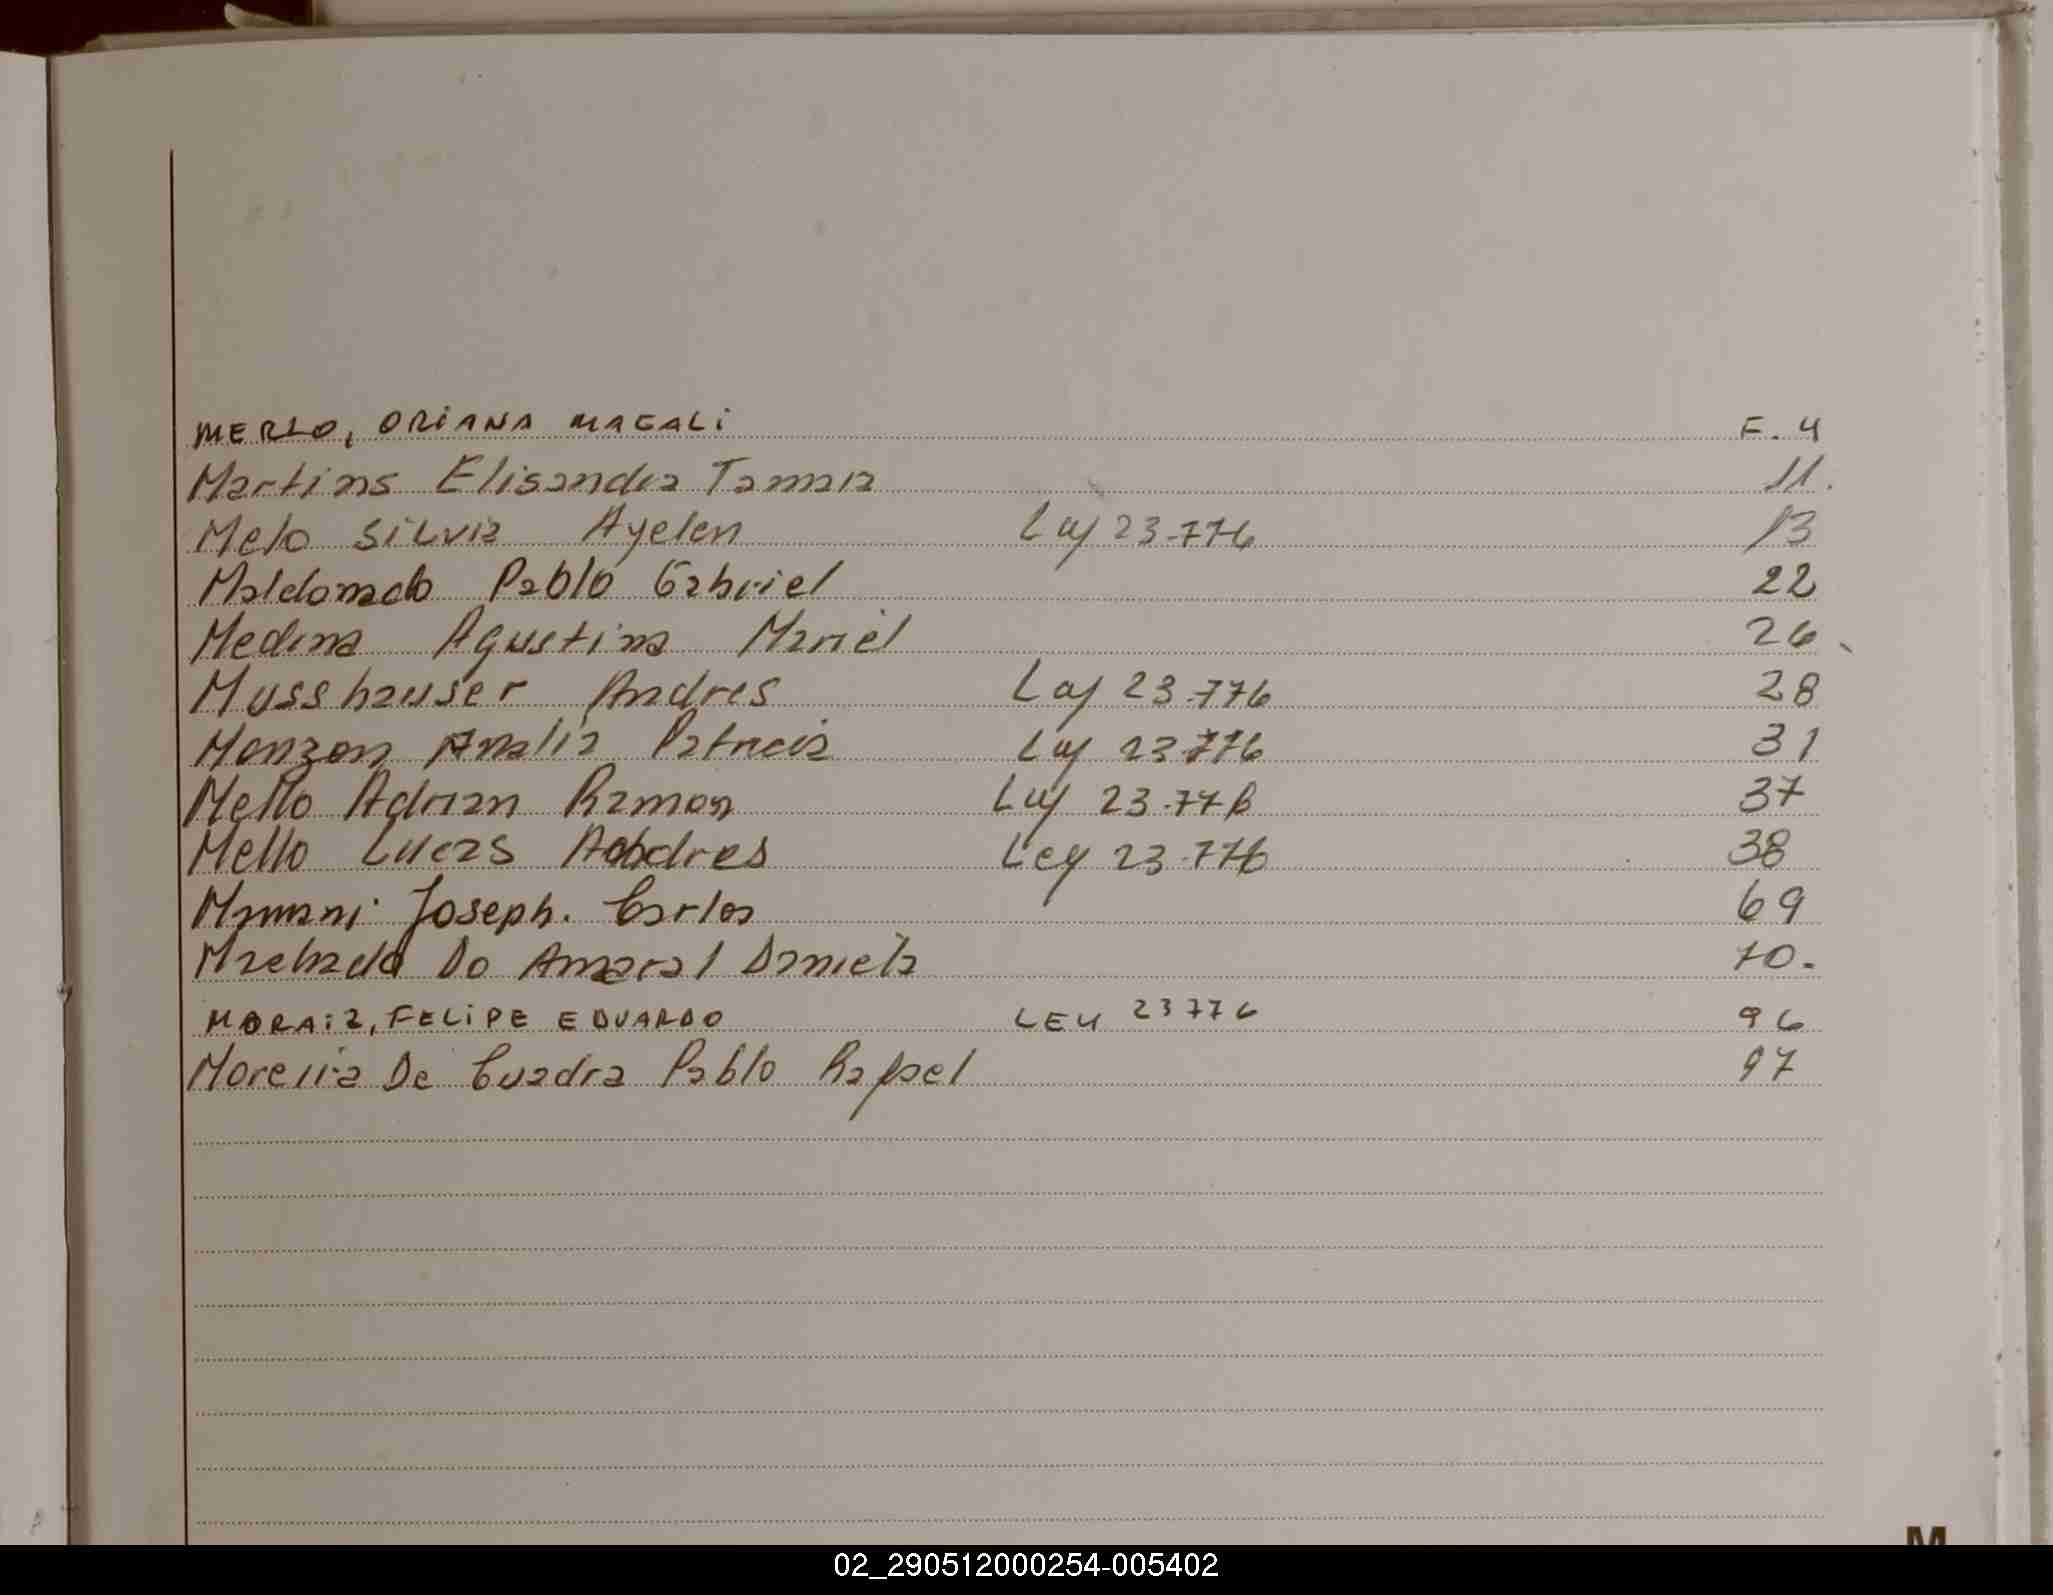 MERLO, ORIANA MAGALI F. 4
Martins Elisandra Tamara 11.
Melo SiLvia Ayelen Ley 23.776 13
Maldonado Pablo Gabriel 22
Medina Agustina Mariel 26
Musshauser Andres Ley 23.776 28
Monzon Analia Patricia Ley 23776 31
Mello Adrian Ramon Ley 23.776 37
Mello Lucas Andres Ley 23.776 38
Mamani Joseph. Carlos 69
Machado Do Amaral Daniela 70.
MORAiz, FELiPE EDUARDO LEY 23776 96
Moreira De Cuadra Pablo Rafael 97
M
02_290512000254-005402